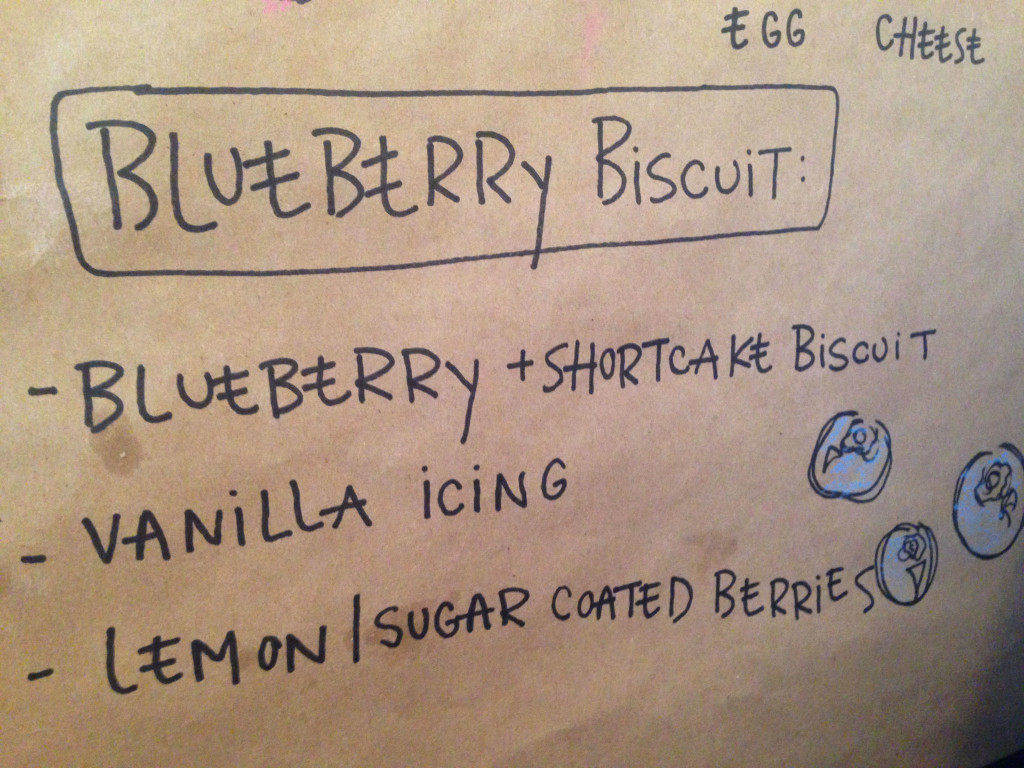 EGG CHEESE
BLUEBERRY BISCUIT:
- BLUEBERRY + SHORTCAKE BISCUIT
- VANILLA ICING
- LEMON/SUGAR COATED BERRIES